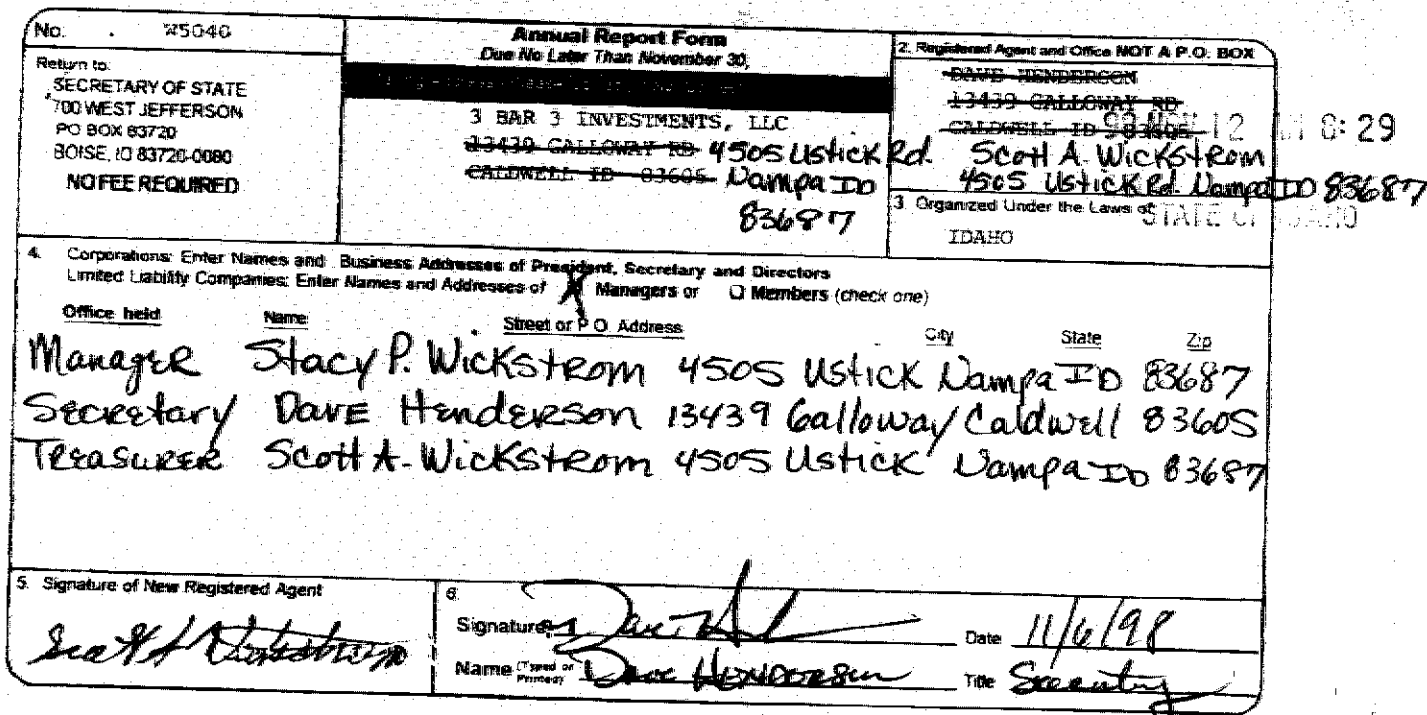 No. W5040
Return to:
SECRETARY OF STATE
700 WEST JEFFERSON
PO BOX 83720
BOISE, ID 83720-0080
NO FEE REQUIRED
Annual Report Form
Due No Later Than November 30,
3 BAR 3 INVESTMENTS, LLC
13439 GALLOWAY RD 4505 Ustick Rd.
CALDWELL ID 83605 Nampa ID
83687
2. Registered Agent and Office NOT A P.O. BOX
DAVE HENDERSON
13439 GALLOWAY RD
CALDWELL ID 83605
12 8:29
Scott A. Wickstrom
4505 Ustick Rd. Nampa ID 83687
3. Organized Under the Laws of
STATE OF IDAHO
IDAHO
4. Corporations: Enter Names and Business Addresses of President, Secretary and Directors
Limited Liability Companies: Enter Names and Addresses of X Managers or Members (check one)
Office held Name Street or P.O. Address City State Zip
Manager Stacy P. Wickstrom 4505 Ustick Nampa ID 83687
Secretary Dave Henderson 13439 Galloway Caldwell 83605
Treasurer Scott A. Wickstrom 4505 Ustick Nampa ID 83687
5. Signature of New Registered Agent
Scott A Wickstrom
6.
Signature Date 11/6/98
Name (Typed or Printed) Dave Henderson Title Secretary